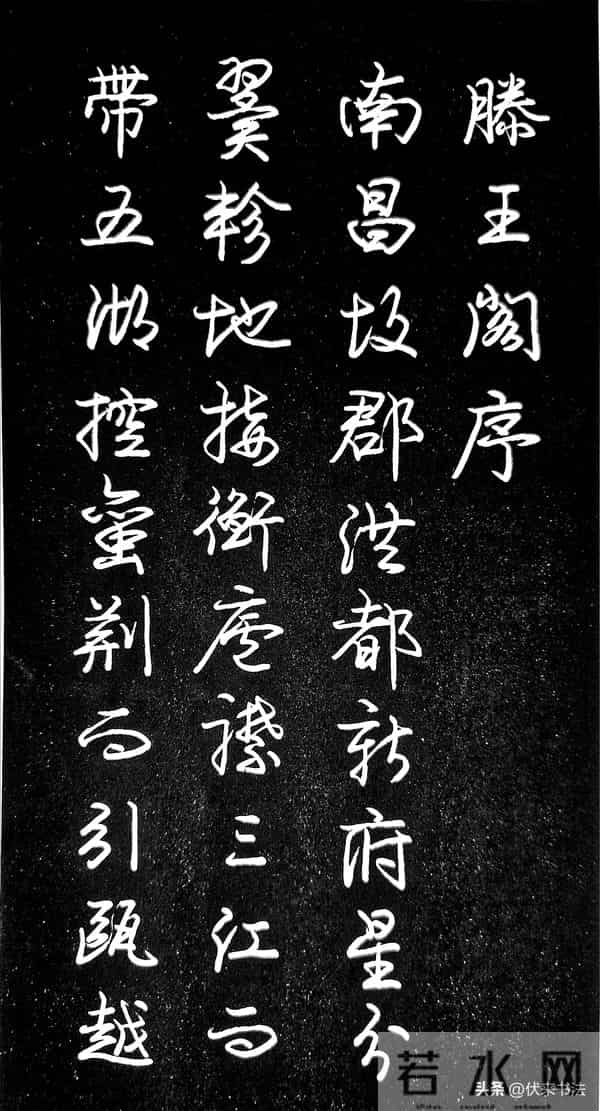 滕王閣序
南昌故郡洪都新府星分
翼軫地接衡廬襟三江而
帶五湖控蠻荆而引甌越
若水网
头条 @伏来书法